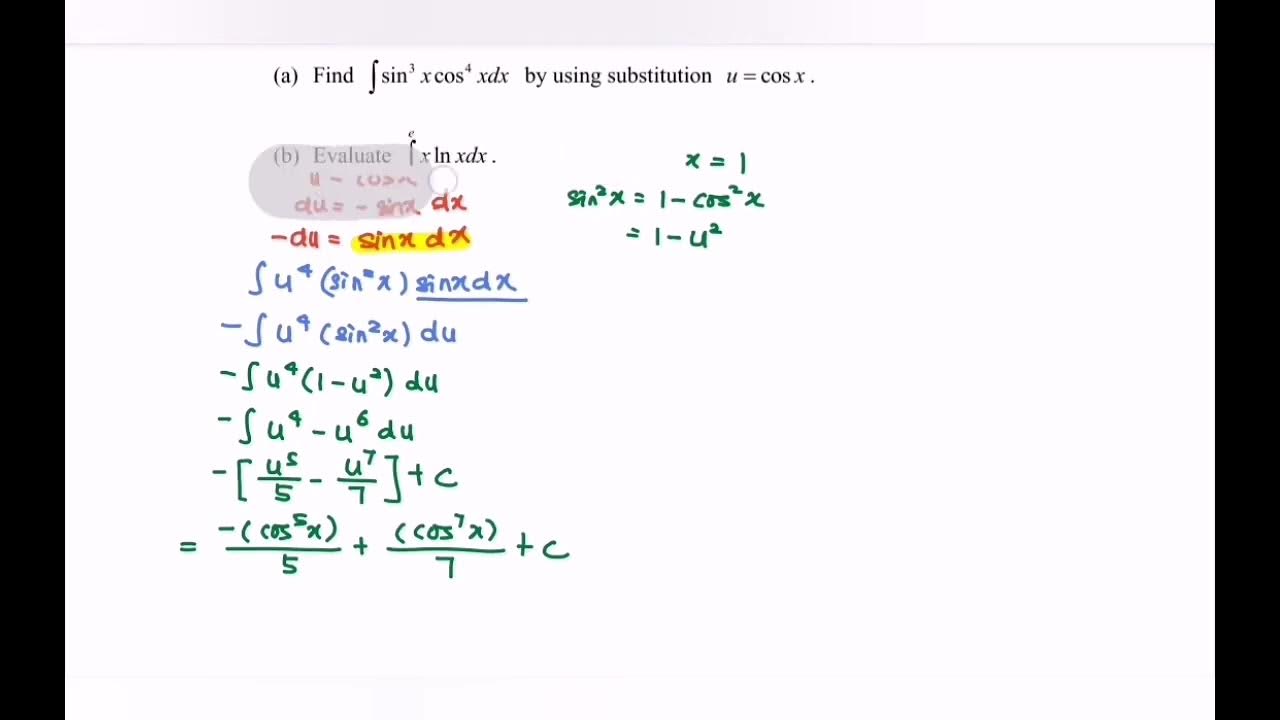 (a) Find ∫sin³ x cos⁴ xdx by using substitution u = cos x .
(b) Evaluate ∫ᵉ x ln xdx .
x = 1
u = cosx
du = - sinx dx
-du = sinx dx
sin²x = 1 - cos²x
= 1 - u²
∫ u⁴ (sin²x) sinxdx
-∫ u⁴ (sin²x) du
-∫ u⁴(1 - u²) du
-∫ u⁴ - u⁶ du
-[u⁵/5 - u⁷/7] + c
= -(cos⁵x)/5 + (cos⁷x)/7 + c